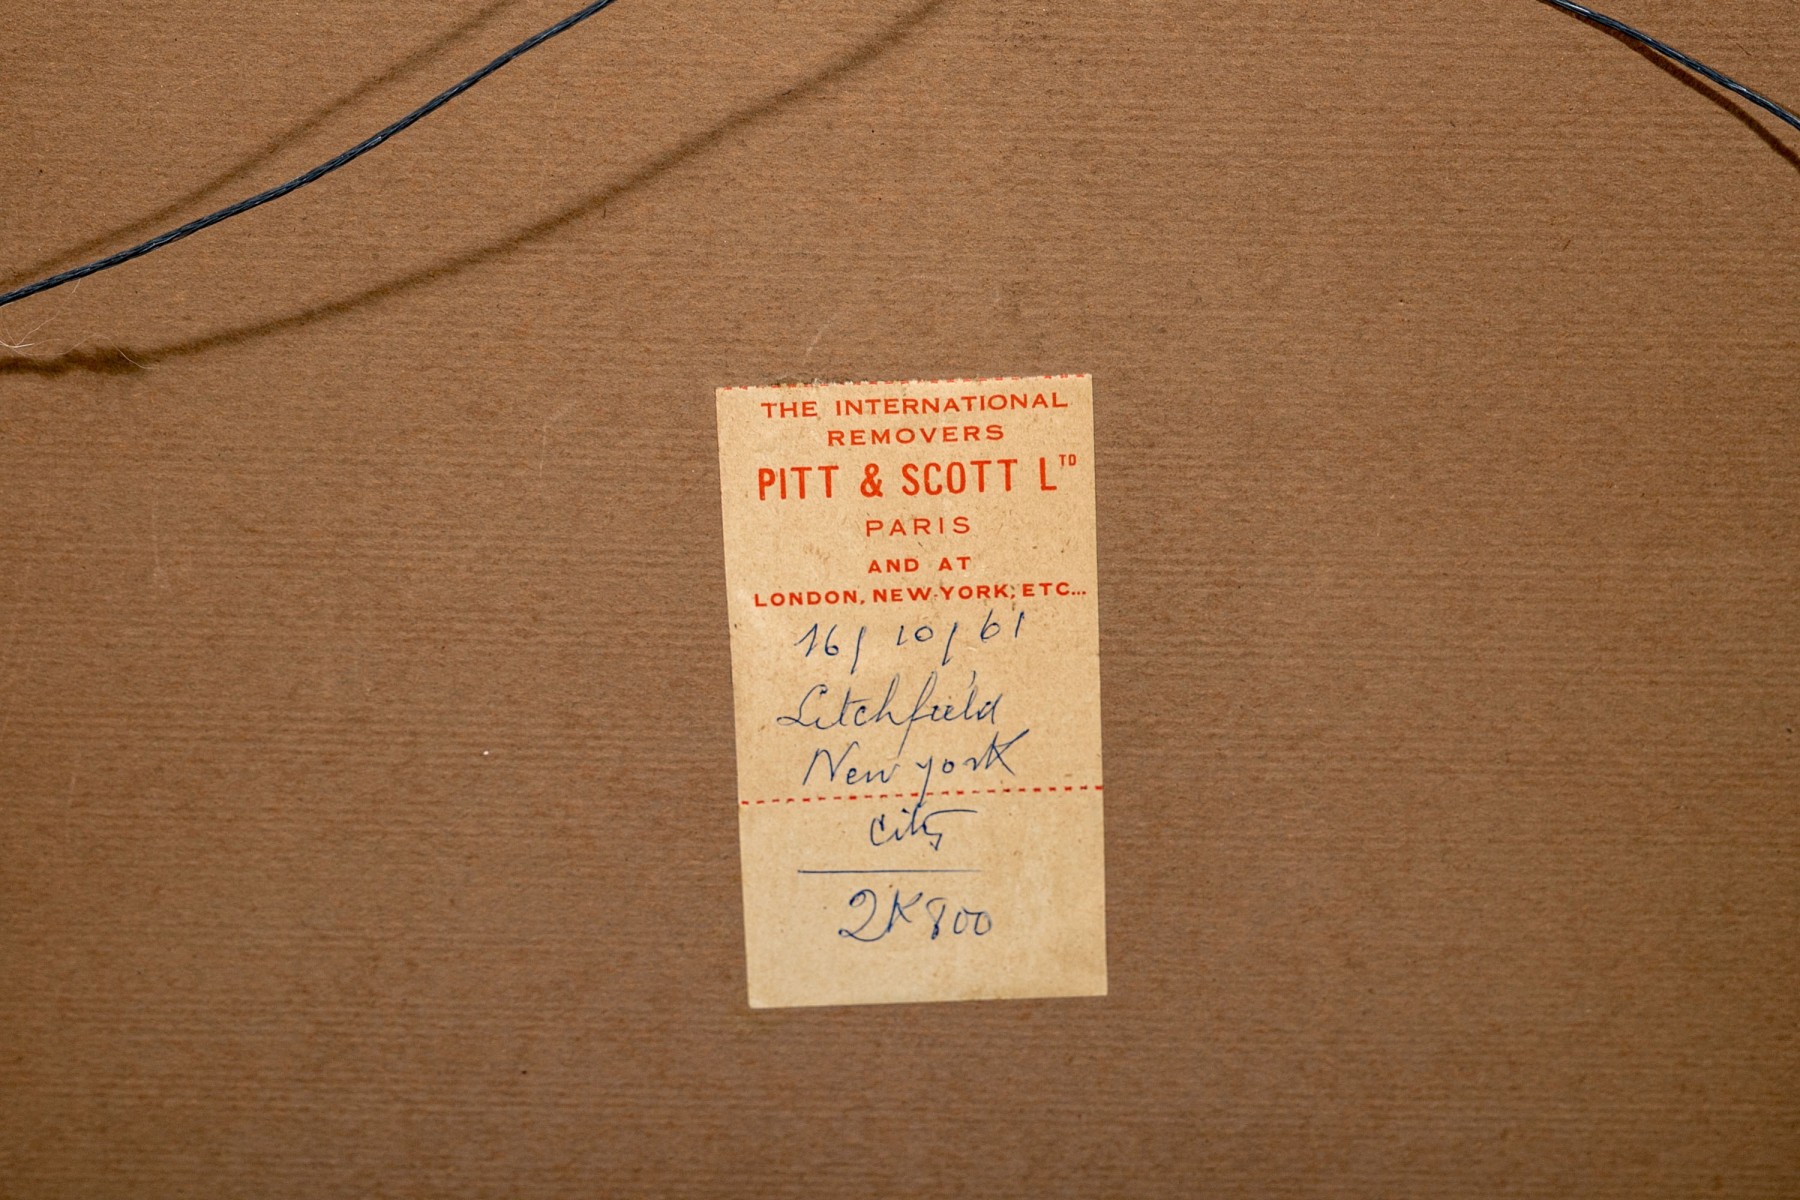 THE INTERNATIONAL
REMOVERS
PITT & SCOTT LTD
PARIS
AND AT
LONDON, NEW-YORK, ETC...
16/10/61
Litchfield
New york
City
2K800